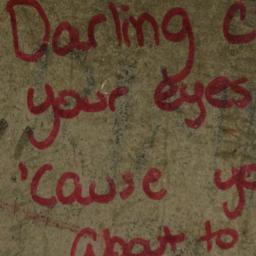 Darling C
your eyes
'Cause yo
About to